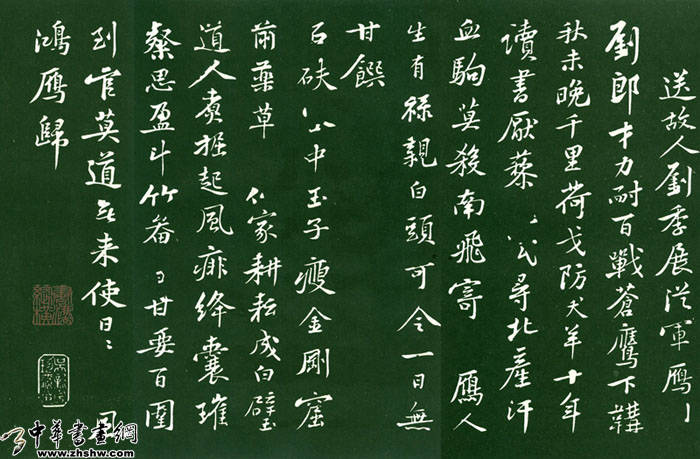 送故人劉季展從軍雁
劉郎才力耐百戰蒼鷹下韝
秋未晚千里荷戈防犬羊十年
讀書厭藜尋北產汗
血駒莫殺南飛寄雁人
生有祿親白頭可令一日無
甘饌
石砆谷中玉子瘦金剛窟
前藥草仙家耕耘成白璧
道人煮掘起風痱絳囊璀
璨思盈斗竹畚甘要百圍
到官莫道無來使日日
鴻雁歸
中華書畫網
www.zhshw.com